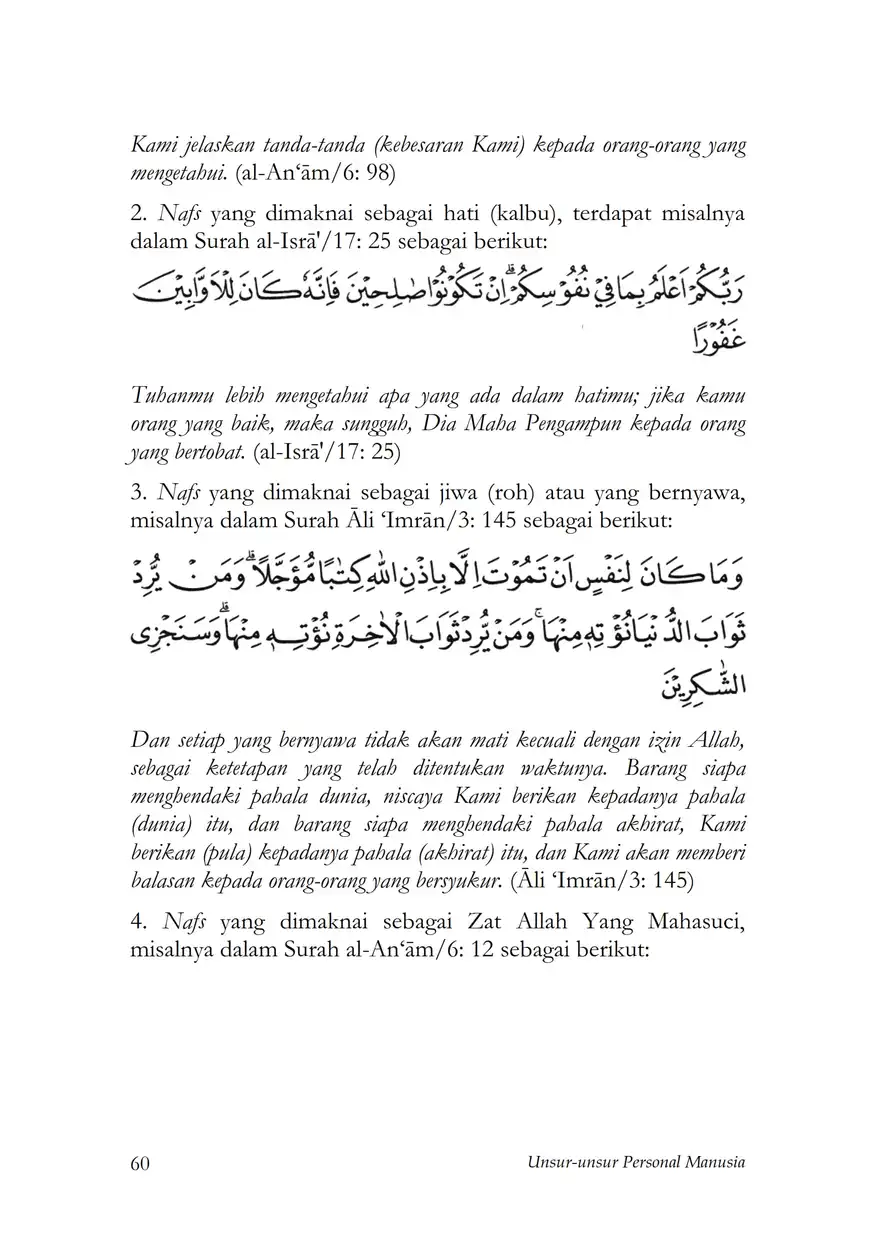 Kami jelaskan tanda-tanda (kebesaran Kami) kepada orang-orang yang
mengetahui. (al-An‘ām/6: 98)
2. Nafs yang dimaknai sebagai hati (kalbu), terdapat misalnya
dalam Surah al-Isrā'/17: 25 sebagai berikut:
رَبُّكُمْ اَعْلَمُ بِمَا فِيْ نُفُوْسِكُمْ ۗ اِنْ تَكُوْنُوْا صٰلِحِيْنَ فَاِنَّهٗ كَانَ لِلْاَوَّابِيْنَ
غَفُوْرًا
Tuhanmu lebih mengetahui apa yang ada dalam hatimu; jika kamu
orang yang baik, maka sungguh, Dia Maha Pengampun kepada orang
yang bertobat. (al-Isrā'/17: 25)
3. Nafs yang dimaknai sebagai jiwa (roh) atau yang bernyawa,
misalnya dalam Surah Āli ‘Imrān/3: 145 sebagai berikut:
وَمَا كَانَ لِنَفْسٍ اَنْ تَمُوْتَ اِلَّا بِاِذْنِ اللّٰهِ كِتٰبًا مُّؤَجَّلًا ۗ وَمَنْ يُّرِدْ
ثَوَابَ الدُّنْيَا نُؤْتِهٖ مِنْهَا ۚ وَمَنْ يُّرِدْ ثَوَابَ الْاٰخِرَةِ نُؤْتِهٖ مِنْهَا ۗ وَسَنَجْزِى
الشّٰكِرِيْنَ
Dan setiap yang bernyawa tidak akan mati kecuali dengan izin Allah,
sebagai ketetapan yang telah ditentukan waktunya. Barang siapa
menghendaki pahala dunia, niscaya Kami berikan kepadanya pahala
(dunia) itu, dan barang siapa menghendaki pahala akhirat, Kami
berikan (pula) kepadanya pahala (akhirat) itu, dan Kami akan memberi
balasan kepada orang-orang yang bersyukur. (Āli ‘Imrān/3: 145)
4. Nafs yang dimaknai sebagai Zat Allah Yang Mahasuci,
misalnya dalam Surah al-An‘ām/6: 12 sebagai berikut:
60 Unsur-unsur Personal Manusia